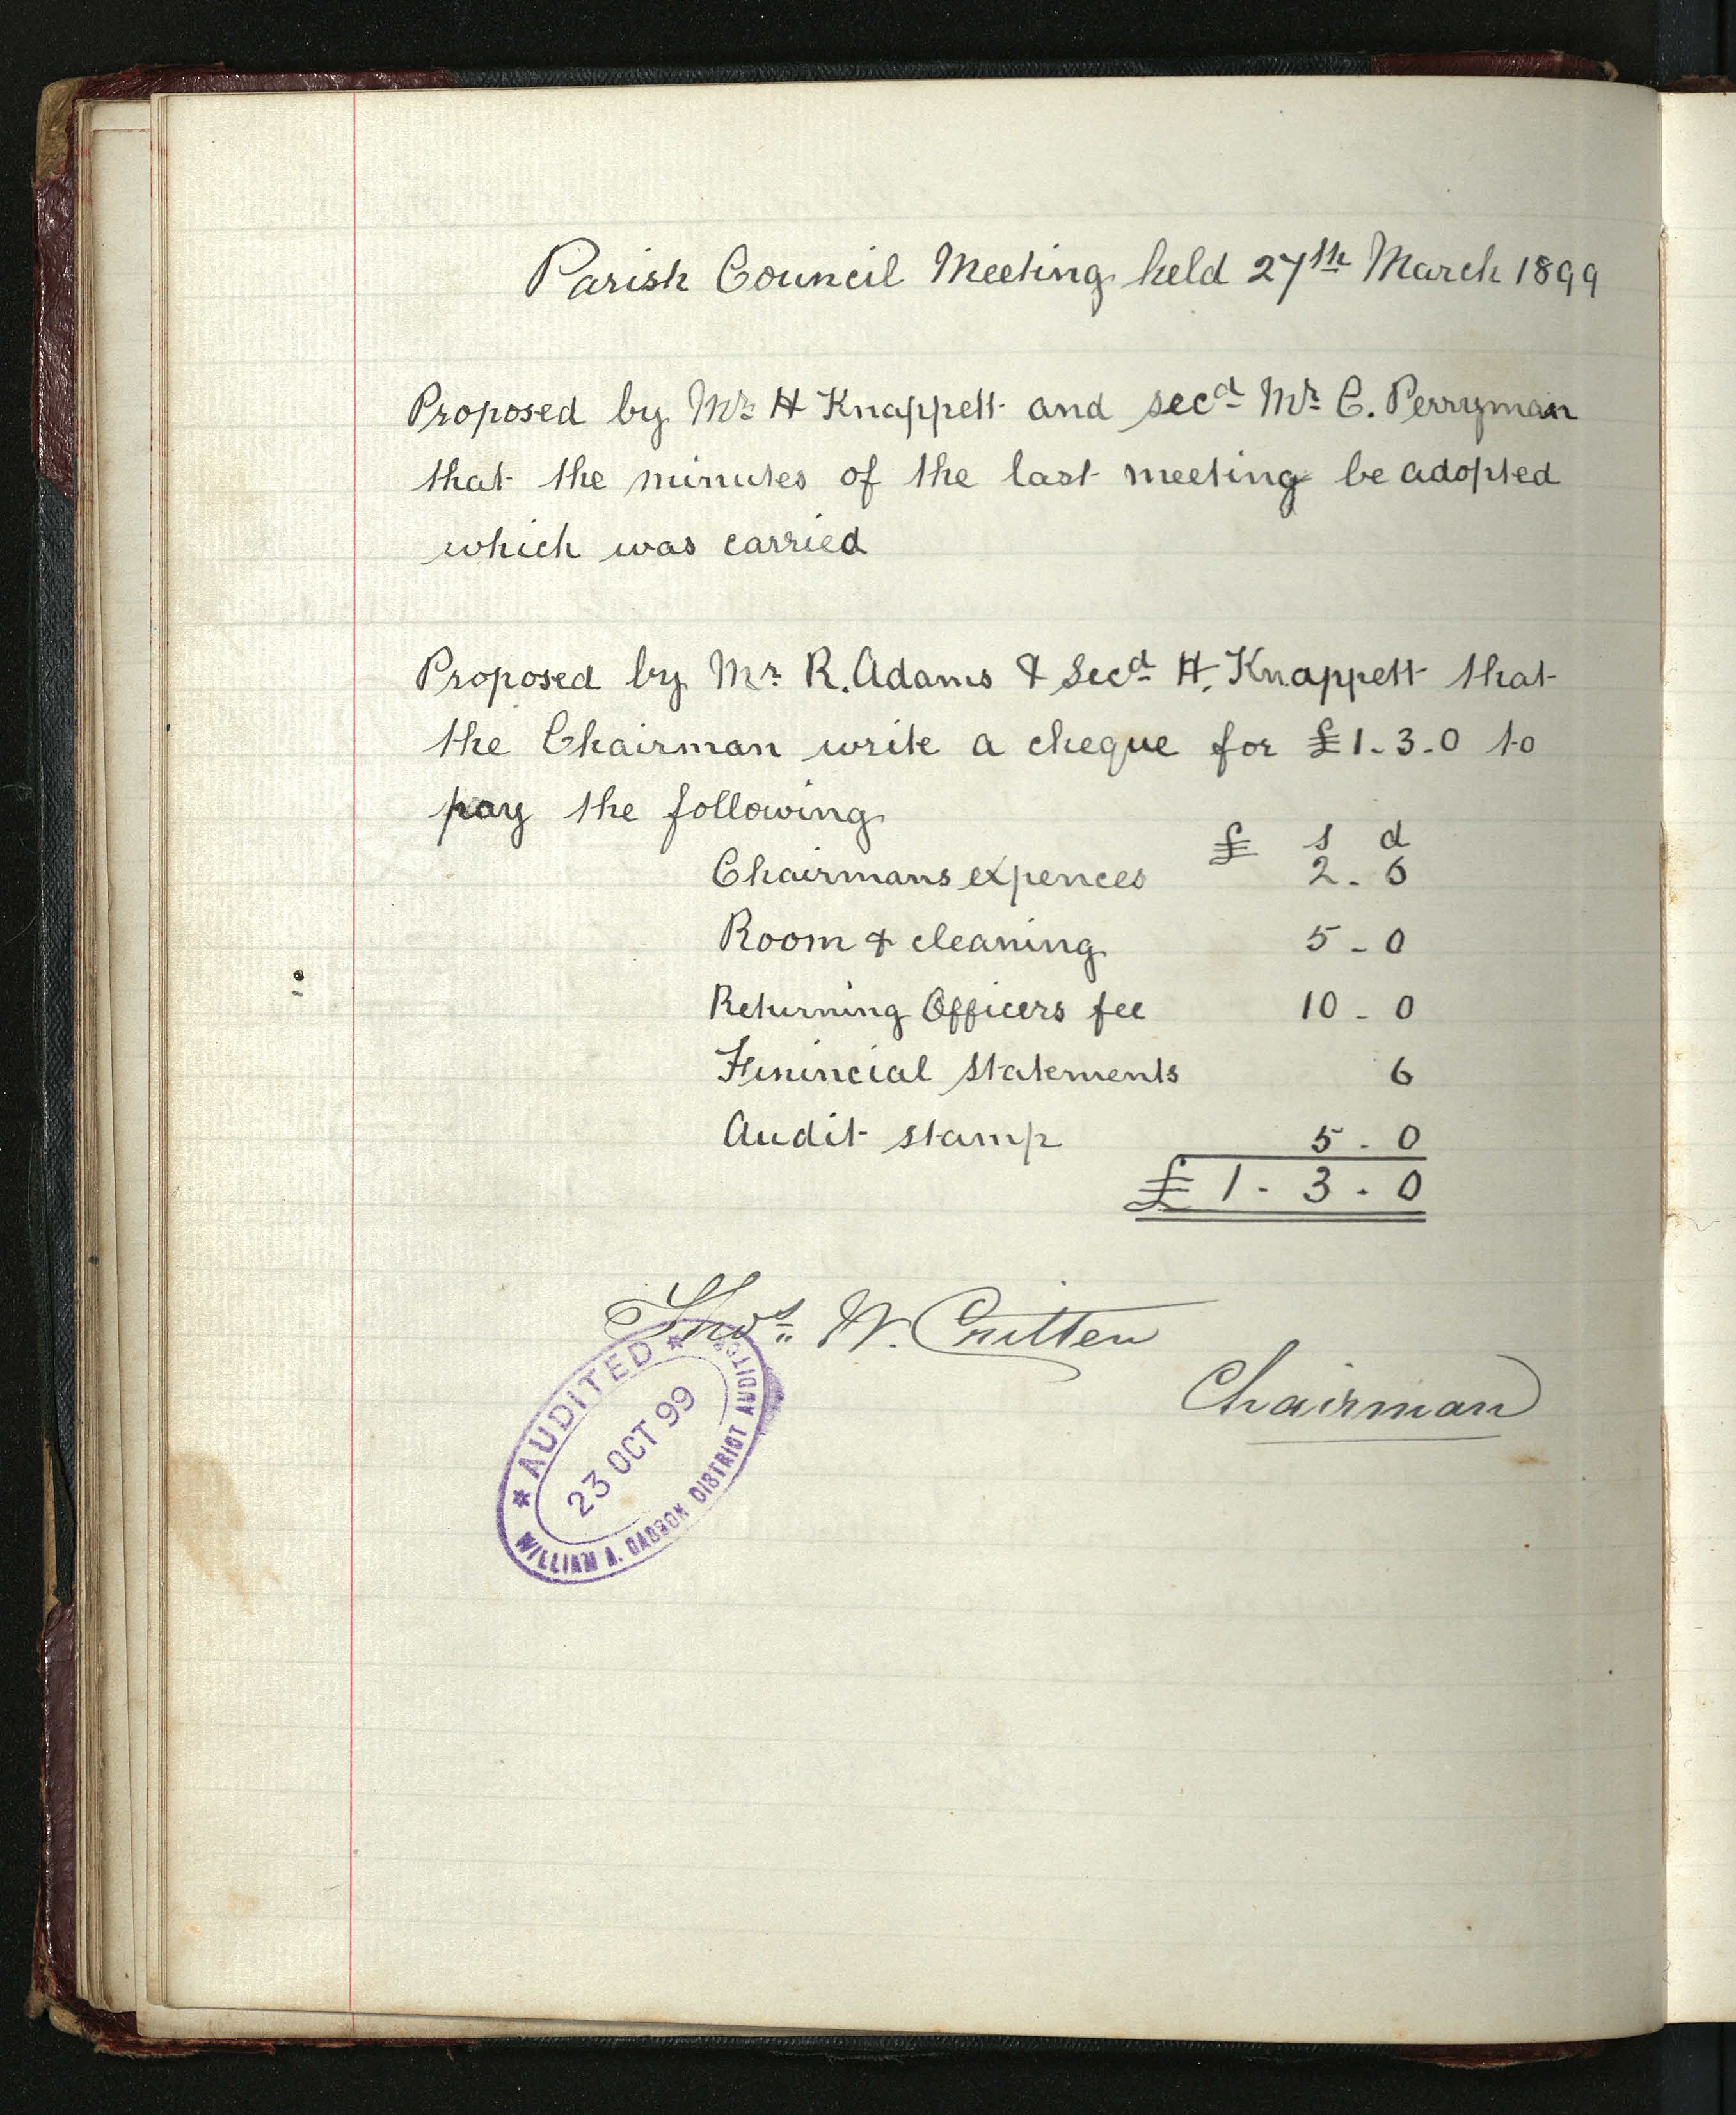 Parish Council Meeting held 27th March 1899
Proposed by Mr H Knappett and secd Mr C. Perryman
that the minutes of the last meeting be adopted
which was carried
Proposed by Mr R. Adams & Secd H. Knappett that
the Chairman write a cheque for £1-3-0 to
pay the following
£ s d
Chairmans expences 2-6
Room & cleaning 5-0
Returning Officers fee 10-0
Finincial statements 6
Audit stamp 5-0
£1-3-0
Thos W. Critten
Chairman
* AUDITED *
23 OCT 99
WILLIAM A. CASSON DISTRICT AUDITOR